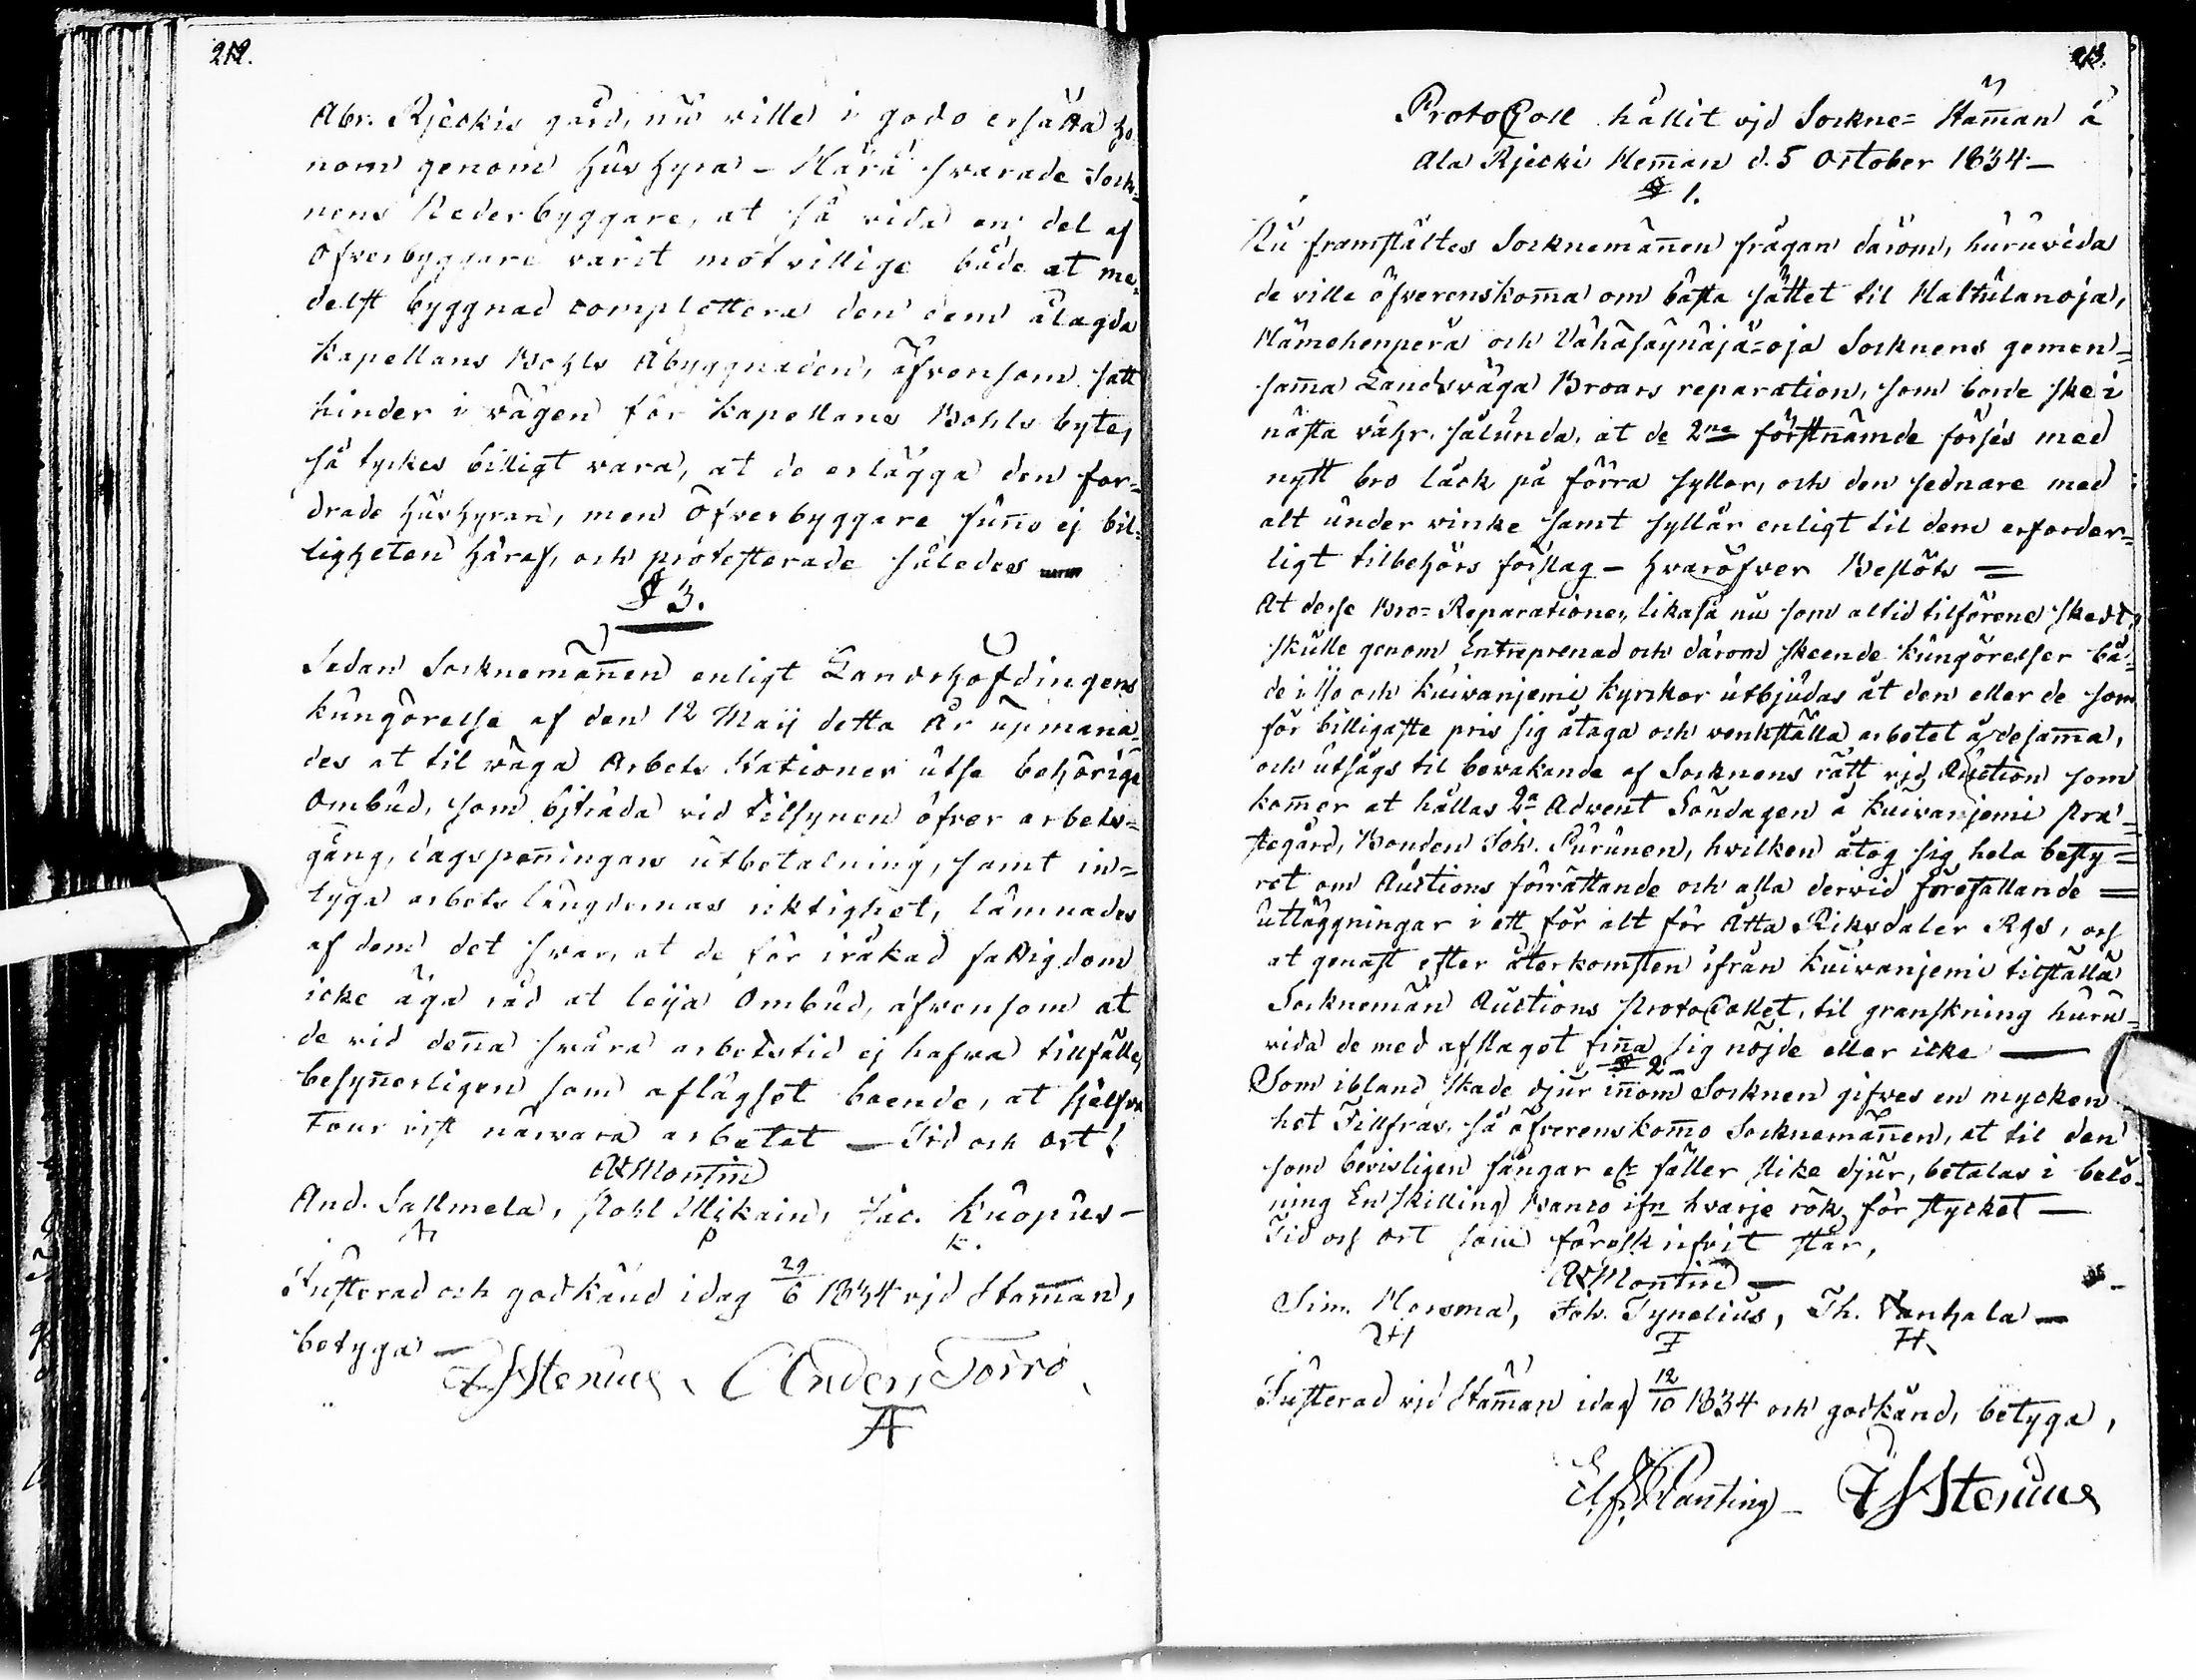 212.
Abr. Rjeckis gård, nu ville i godo ersätta ho-
nom genom hus hyra – Härå svarade Sock-
nens Nederbyggare, at så vida en del af
Öfverbyggare varit motvillige både at me-
delst byggnad complettera den dem ålagda
Kapellans Bohls Åbyggnaden, äfvensom satt
hinder i vägen för Kapellans Bohls byte,
så tyckes billigt vara, at de erlägga den for-
drade hushyran, men Öfverbyggare funno ej bil-
ligheten häraf, och protesterade således —
§ 3.
Sedan Socknemännen enligt Landshöfdingens
Kungörelse af den 12 Maij detta År upmana-
des at til wäga Arbets Stationer utse behörige
Ombud, som bjträda vid tillsynen öfver arbets-
gång, dagspenningars utbetalning, samt in-
tyga arbets längdernas riktighet, lämnades
af dem det svar, at de för iråkad fattigdom
icke äga råd at leija Ombud, äfvensom at
de vid denna svåra arbetstid ej hafva tillfälle,
besynnerligen som aflägset boende, at sjelfva
tour vist närvara arbetet — Tid och Ort!
A Montin
And. Sallmela, Pohl Mikain, Jac. Kuopus –
P K.
Justerad och godkänd idag 29/6 1834 vid Stamman,
betyga —
J S Stenius, Anders Torro
A
213.
Protocoll hållit vid Sockne= Stamman å
Ala Rjecki Hemman d. 5 October 1834 –
§ 1.
Nu framstältes Socknemännen frågan därom, huruvida
de ville öfverenskomma om bästa sättet til Haltulanoja,
Hämehenperä och Vähäsaynäjä=oja Socknens gemen=
samma Landsväga Broars reparation, som borde ske i
nästa våhr. sålunda, at de 2ne förstnämde förses med
nytt bro läck på förra syllor, och den sednare med
alt under vinke samt syllar enligt til dem erforder=
ligt tilbehörs förslag – hvaröfver Beslöts =
At desse Bro= Reparationer, likaså nu som altid tilförene skedt,
skulle genom Entreprenad och därom skeende kungörelser bå-
de i Ijo och Kuivanjemi kyrckor utbjudas åt den eller de som
för billigaste pris sig åtaga och verkställa arbetet å desamma,
och utsågs til bevakande af Socknens rätt vid Auction som
kommer at hållas 2a Advent Söndagen å Kuivanjemi Pre-
stegård, Bonden Joh. Purunen, hvilken åtog sig hela besty=
ret om Auctions förrättande och alla dervid förefallande =
Utläggningar i ett för alt för Åtta Riksdaler Rgs, och
at genast efter återkomsten ifrån Kuivanjemi tilställa
Socknemän Auctions Protocollet, til granskning huru-
vida de med afslaget finna sig nöjde eller icke —
§ 2 –
Som ibland skade djur innom Socknen gifves en mycken-
het Fillfras, så öfverenskommo Socknemännen, at til den
som bevisligen fångar ell: fäller slike djur, betalas i belö-
ning En Skilling Banco ifn hvarje rök för stycket —
Tid och Ort som föreskrifvit står,
A Montin —
Sim. Hersma, Joh. Tynelius, Th. Vanhala —
Justerad vid Stamman idag 12/10 1834 och godkänd, betyga,
El. Planting – J S Stenius